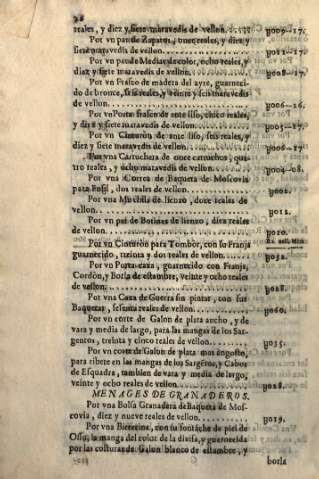 reales, y diez y siete maravedis de vellon. y009-17.
Por vn par de Zapatos, onze reales, y diez y
siete maravedis de vellon. y011-17.
Por vn par de Medias de color, ocho reales, y
diez y siete maravedis de vellon. y008-17.
Por vn Frasco de madera del ayre, guarneci-
do de bronce, seis reales, y veinte y seis maravedis
de vellon. y006-26.
Por vn frasco de ante liso, cinco reales,
y diez y siete maravedis de vellon. y005-17.
Por vn Cinturon de ante liso, seis reales, y
diez y siete maravedis de vellon. y006-17
Por vna Cartuchera de onze cartuchos, qua-
tro reales, y ocho maravedis de vellon. y004-08.
Por vna Correa de Baqueta de Moscovia
para Fusil, dos reales de vellon. y002.
Por vna Muchila de lienzo, doze reales de
vellon. y012.
Por vn par de Botines de lienzo, diez reales
de vellon. y010.
Por vn Cinturon para Tombor, con su Franja
guarnecido, treinta y dos reales de vellon. y032.
Por vn Porta-caxa, guarnecido con Franja,
Cordon, y Borla de estambre, veinte y ocho reales
de vellon. y028.
Por vna Caxa de Guerra sin pintar, con sus
Baquetas, sesenta reales de vellon. y060.
Por vn corte de Galon de plata ancho, y de
vara y media de largo, para las mangas de los Sar-
gentos, treinta y cinco reales de vellon. y035.
Por vn corte de Galon de plata mas angosto,
para ribete en las mangas de los Sargentos, y Cabos
de Esquadra, tambien de vara y media de largo,
veinte y ocho reales de vellon. y028.
MENAGES DE GRANADEROS.
Por vna Bolsa Granadera de Baqueta de Mos-
covia, diez y nueve reales de vellon. y019.
Por vna Birretina, con su de piel de
Osso, la manga del color de la divisa, y guarnecida
por las costuras de Galon blanco de estambre, y
borla